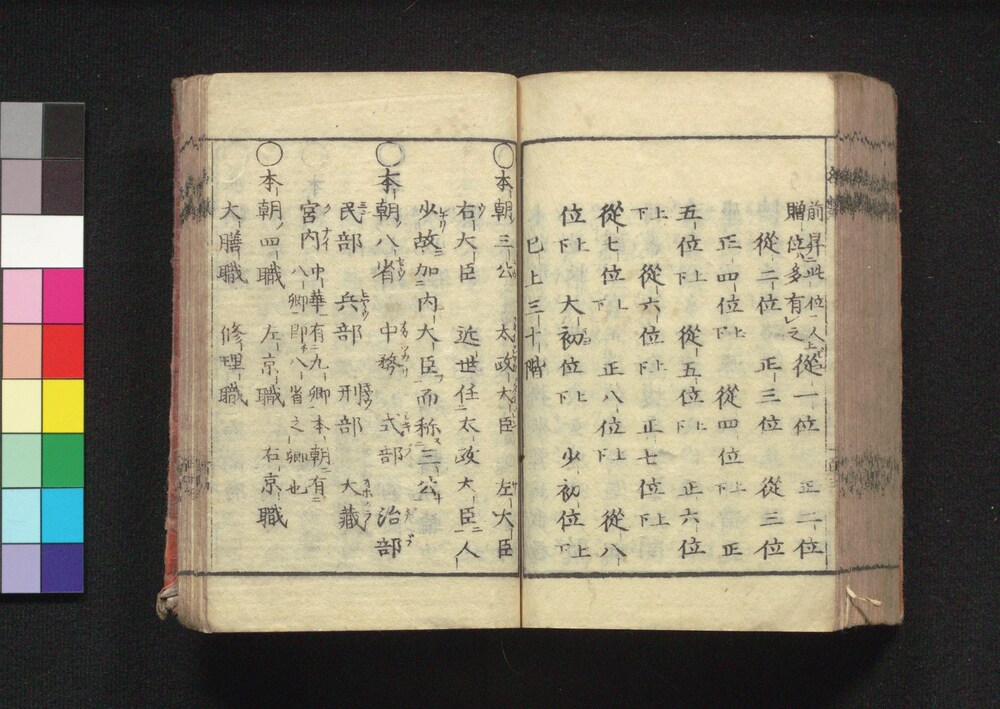 前昇此位一人上從一位 正二位
贈位多有之
從二位 正三位 從三位
正四位上下 從四位上下 正
五位上下 從五位上下 正六位
上下 從六位上下 正七位上下
從七位上下 正八位上下 從八
位上下 大初位上下 少初位上下
已上三十階
○本朝三公 太政大臣 左大臣
右大臣 近世任太政大臣人
少故加内大臣而称三公
○本朝八省 中務 式部 治部
民部 兵部 刑部 大藏
宮内 中華有九卿本朝有
八卿即八省之卿也
○本朝四職 左京職 右京職
大膳職 修理職